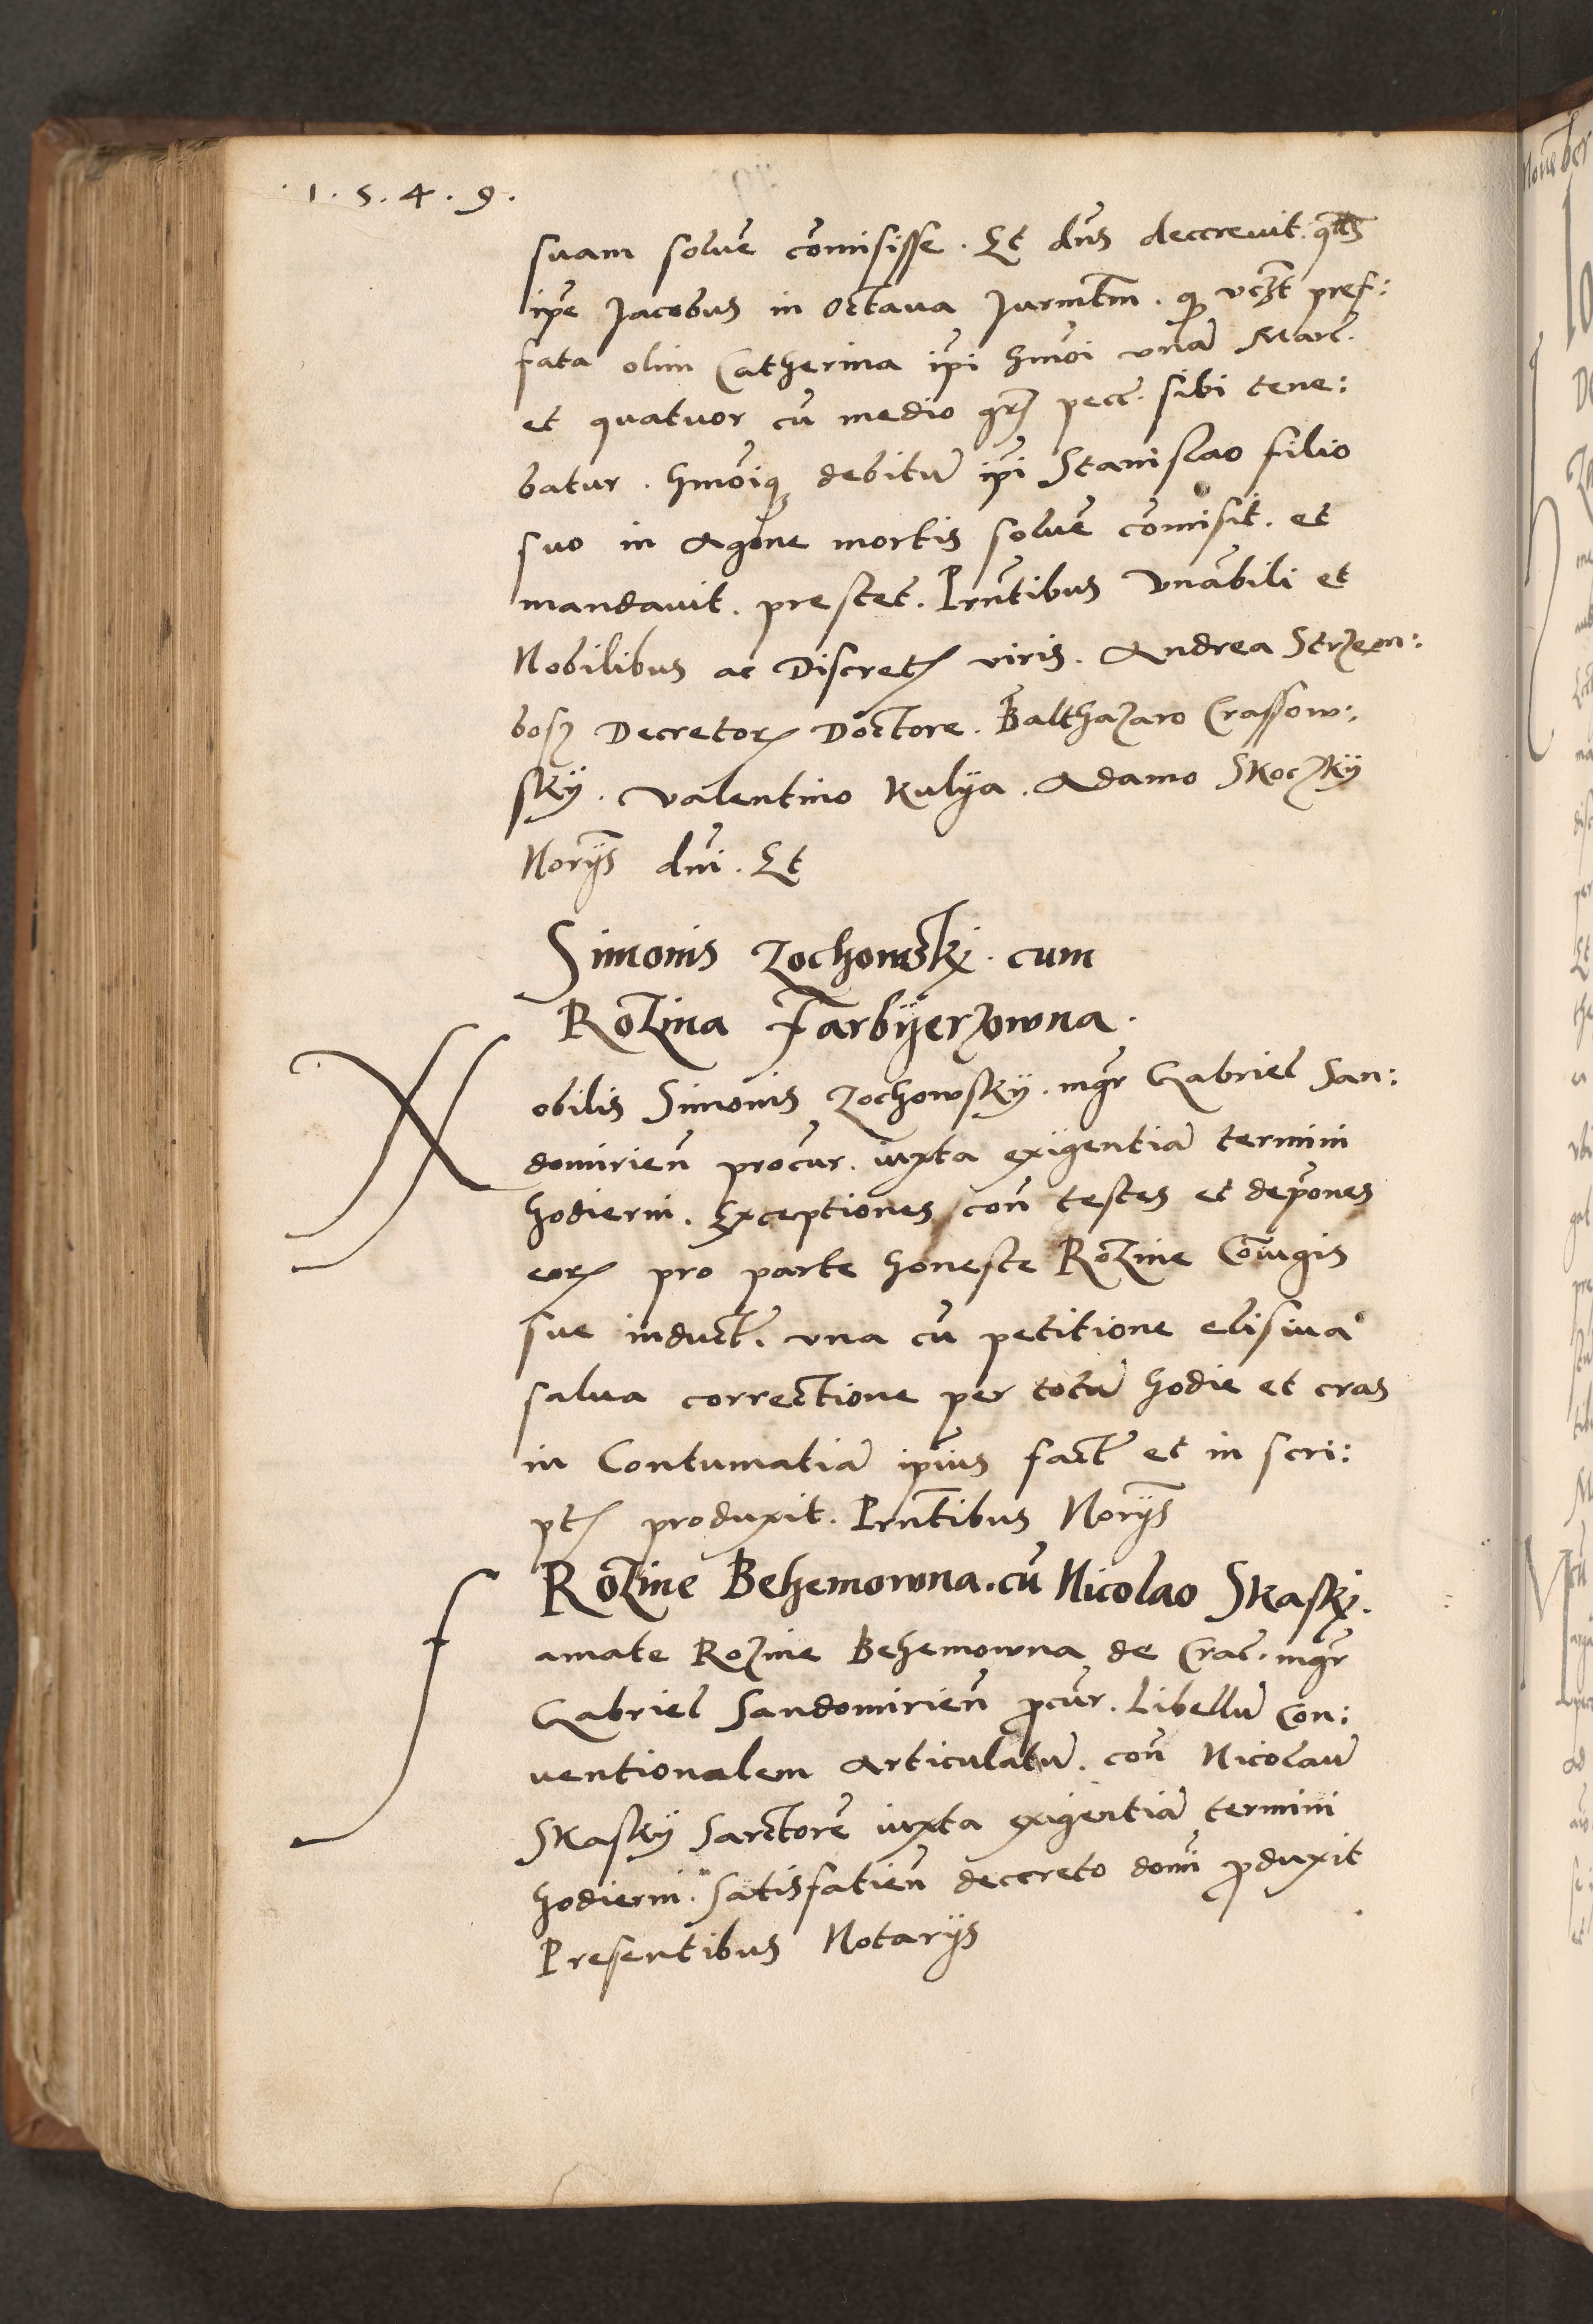 .1.5.4.9.
suam solue comisisse. Et dns decreuit. qtz
ipe Jacobus in octaua Jurmtm. q vczt pref:
fata olim Catherina ipi hmoi vna Marc.
et quatuor cu medio grz pecc. sibi tene:
batur. hmoiq debitu ipi Stanislao filio
suo in agone mortis solue comisit. et
mandauit. prestet. Prntibus Vnabili et
Nobilibus ac Discretz viris. Andrea Strzem:
bosz Decretorz Doctore. Balthazaro Crassow:
sky. Valentino Kulya. Adamo Skoczky
Norijs dni. Et
Simonis Zochowskj. cum
Rozina Farbijerzowna.
Nobilis Simonis Zochowsky. mgr Gabriel San:
domirien procur. iuxta exigentia termini
hodierni. Exceptiones con testes et depones
eorz pro parte honeste Rozine Coniugis
sue induct. vna cu petitione elisiua
salua correctione per totu hodie et cras
in Contumatia ipius fact et in scri:
ptz produxit. Prntibus Norijs
Rozine Behemowna. cu Nicolao Skaskj.
Famate Rozine Behemowna de Crac. mgr
Gabriel Sandomirien pcur. Libellu Con:
uentionalem articulatu. con Nicolau
Skasky Sarctore iuxta exigentia termini
hodierni. Satisfatien decreto domi pduxit
Presentibus Notarijs